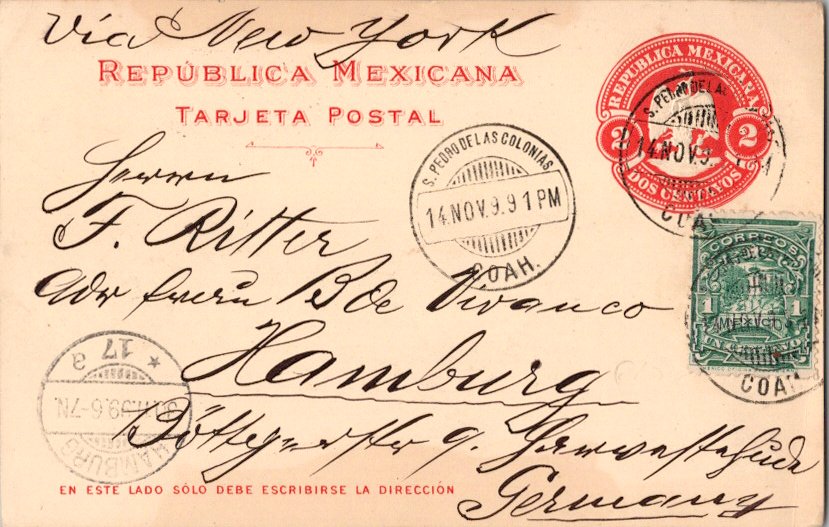 Via New York
REPÚBLICA MEXICANA
TARJETA POSTAL
REPUBLICA MEXICANA
2 2
DOS CENTAVOS
S. PEDRO DE LA
14 NOV. 9
COAH
S. PEDRO DE LAS COLONIAS
14 NOV. 9. 9 1 PM
COAH.
Herrn
F. Ritter
Adr frau B de Vivanco
Hamburg
Böttgerstr 9. Harvestehude
Germany
CORREOS
1 1
MEXICO
UN CENTAVO
COAH
* 17 a
99.6-7N.
HAMBURG
EN ESTE LADO SÓLO DEBE ESCRIBIRSE LA DIRECCIÓN